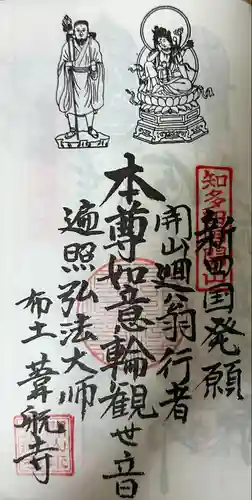 新四国発願
開山廻公翁行者
本尊如意輪観世音
遍照弘法大師
布土 葦航寺